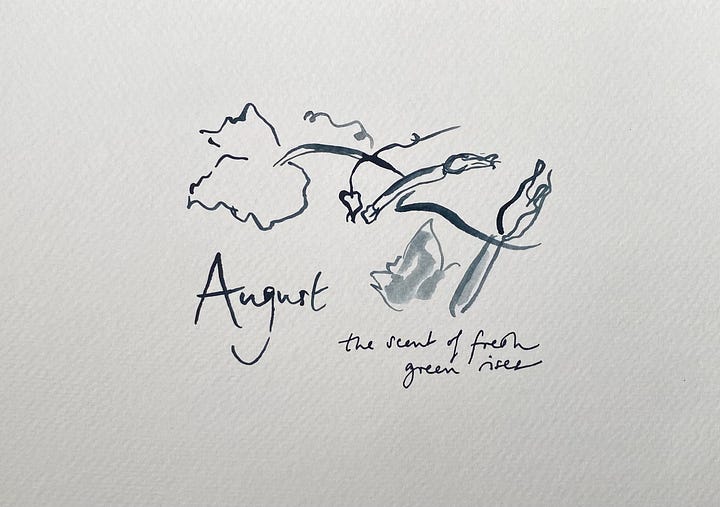 August
the scent of fresh
green rises